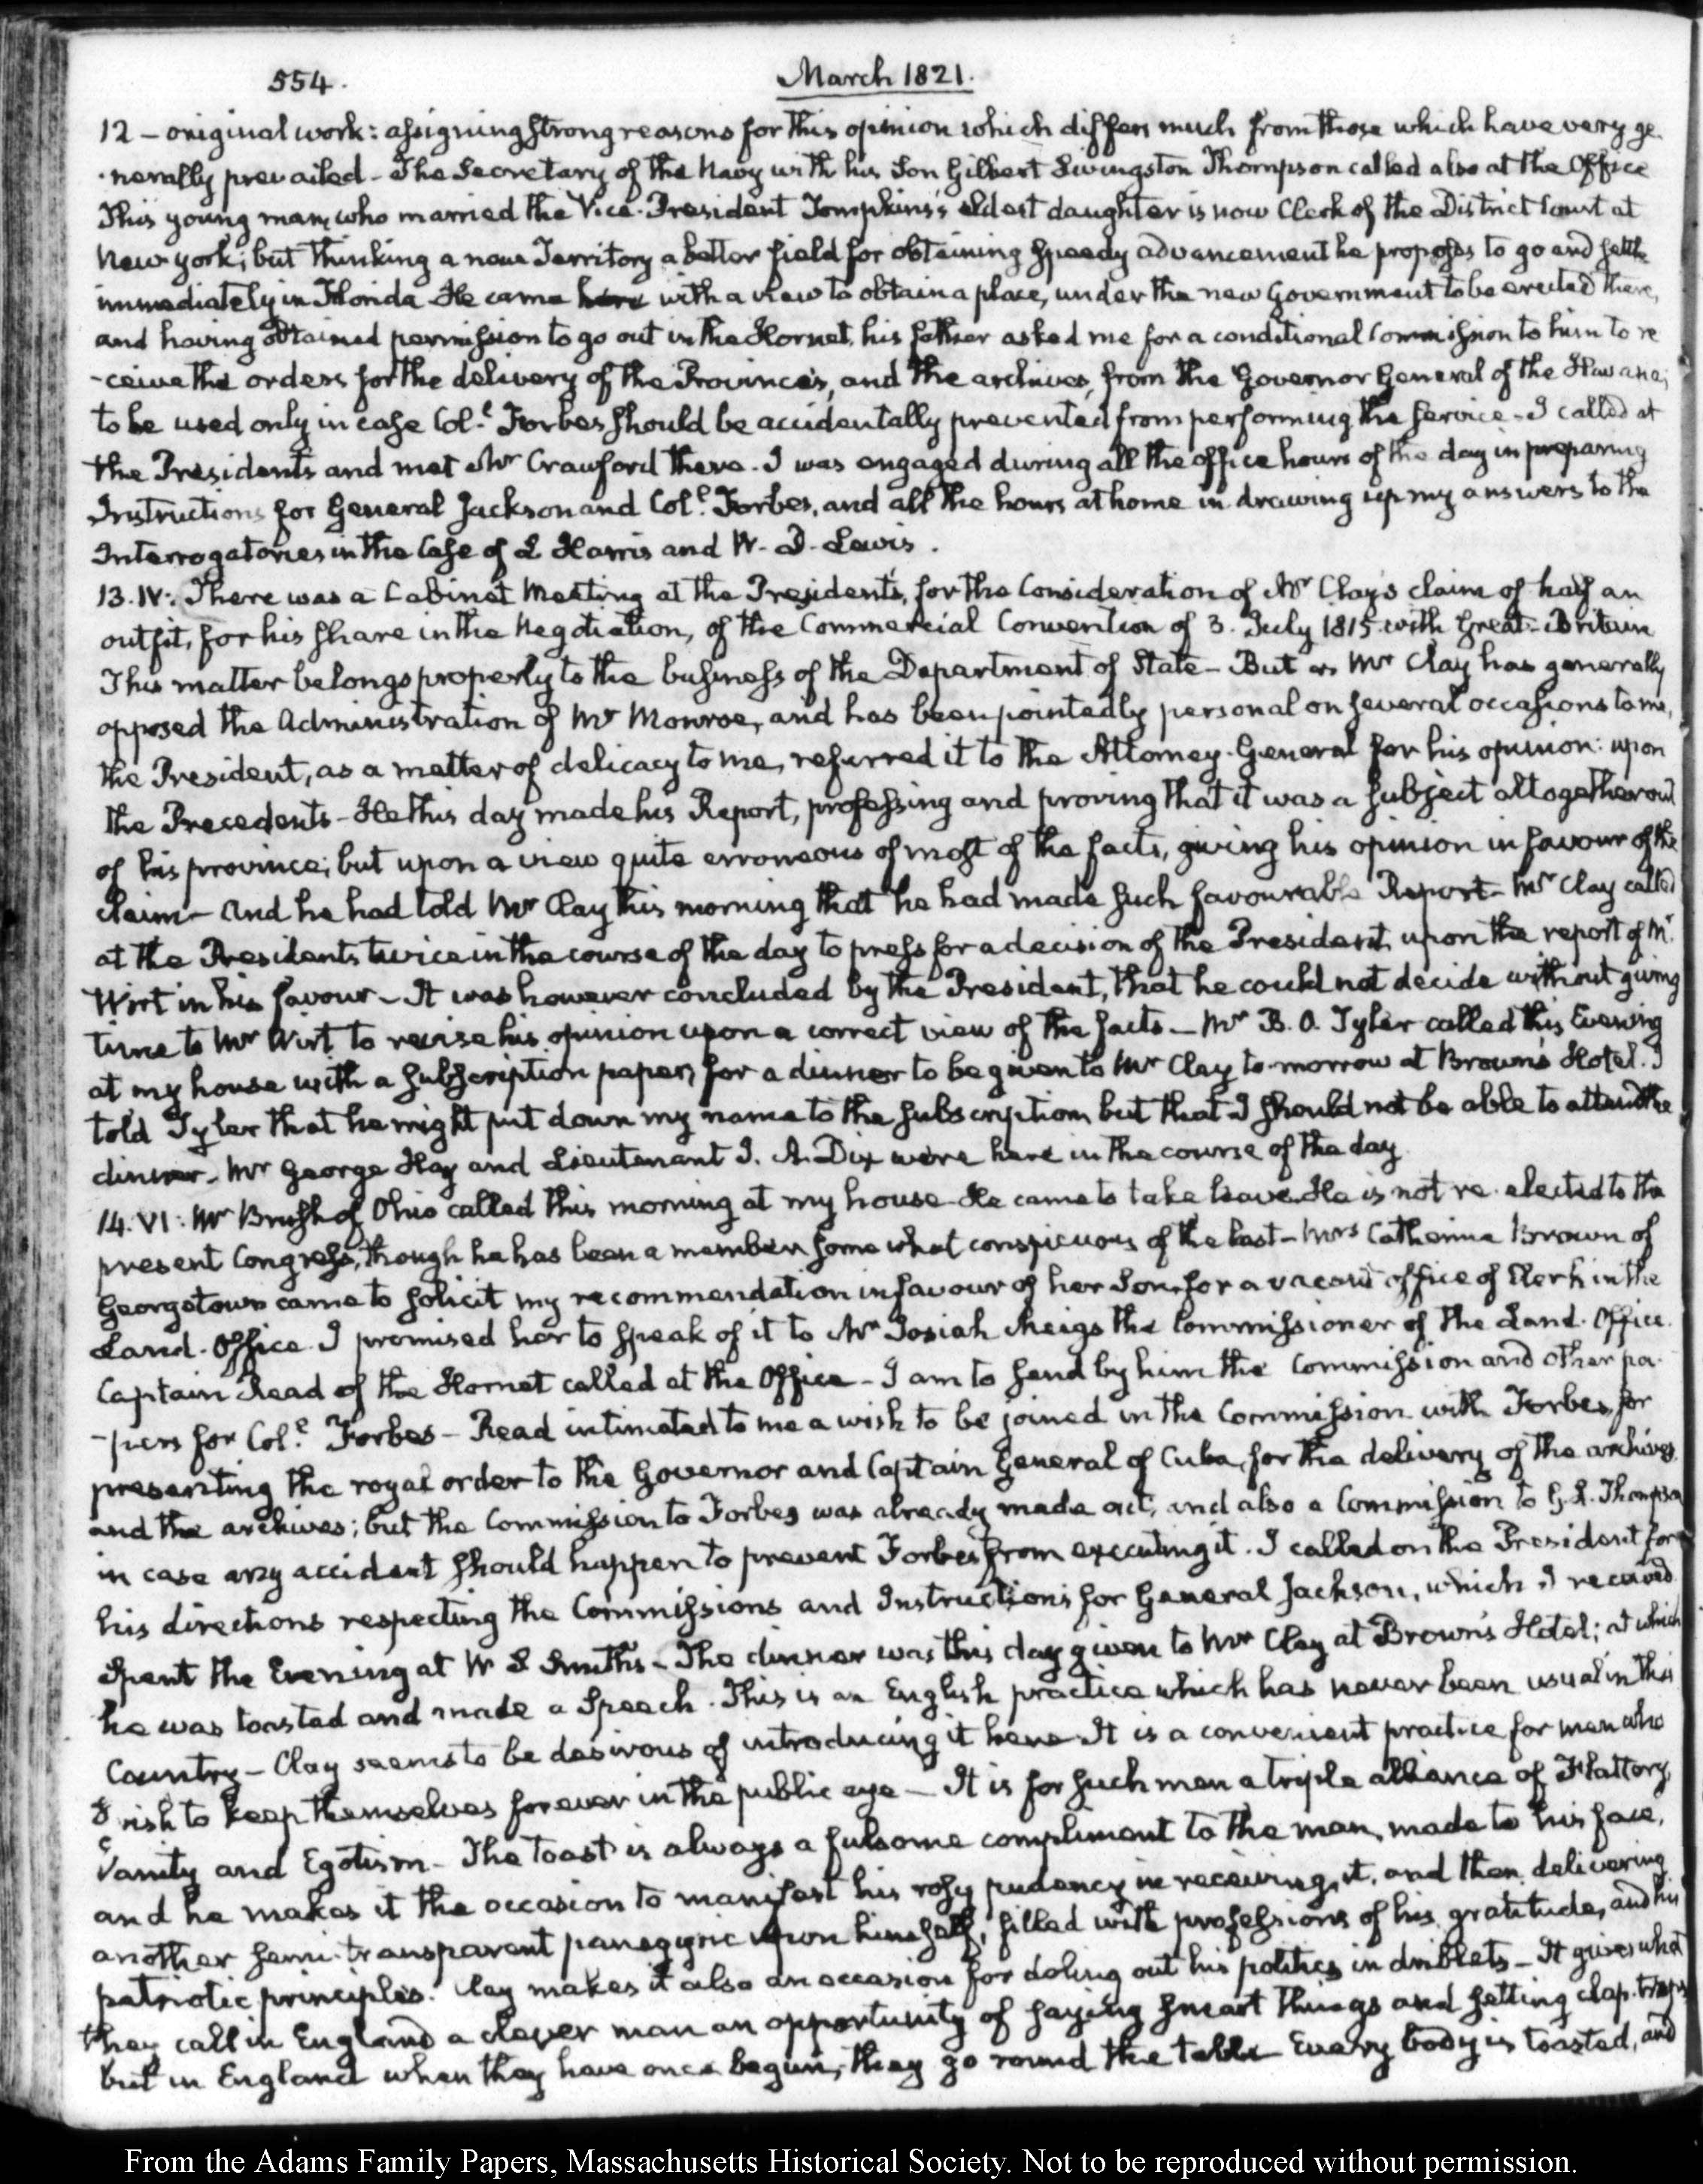 554.
March 1821.
12 – original work: assigning strong reasons for this opinion which differs much from those which have very ge-
-nerally prevailed – The Secretary of the Navy with his Son Gilbert Livingston Thompson called also at the Office
This young man, who married the Vice-President Tompkins's eldest daughter is now Clerk of the District Court at
New York; but thinking a new Territory a better field for obtaining speedy advancement he proposes to go and settle
immediately in Florida He came here with a view to obtain a place, under the new Government to be erected there,
and having obtained permission to go out in the Hornet, his father asked me for a conditional Commission to him to re
-ceive the orders for the delivery of the Provinces, and the archives, from the Governor General of the Havana;
to be used only in case Col.l Forbes should be accidentally prevented from performing the service – I called at
the Presidents and met Mr Crawford there. I was engaged during all the office hours of the day in preparing
Instructions for General Jackson and Col.l Forbes, and all the hours at home in drawing up my answers to the
Interrogatories in the Case of L Harris and W. D. Lewis.
13. IV: There was a Cabinet Meeting at the President's, for the Consideration of Mr Clay's claim of half an
outfit, for his share in the Negotiation, of the Commercial Convention of 3. July 1815 with Great-Britain
This matter belongs properly to the business of the Department of State – But as Mr Clay has generally
opposed the Administration of Mr Monroe, and has been pointedly personal on several occasions to me,
the President, as a matter of delicacy to me, referred it to the Attorney-General for his opinion: upon
the Precedents – He this day made his Report, professing and proving that it was a subject altogether out
of his province; but upon a view quite erroneous of most of the facts, giving his opinion in favour of the
claim – and he had told Mr Clay this morning that he had made such favourable Report – Mr Clay called
at the Presidents twice in the course of the day to press for a decision of the President, upon the report of Mr
Wirt in his favour – It was however concluded by the President, that he could not decide without giving
time to Mr Wirt to revise his opinion upon a correct view of the facts – Mr B. O. Tyler called this Evening
at my house with a subscription paper, for a dinner to be given to Mr Clay to-morrow at Brown's Hotel. I
told Tyler that he might put down my name to the subscription, but that I should not be able to attend the
dinner. Mr George Hay and Lieutenant J. A. Dix were here in the course of the day
14. VI: Mr Brush of Ohio called this morning at my house He came to take leave. He is not re-elected to the
present Congress, though he has been a member somewhat conspicuous of the last – Mrs Catherine Brown of
Georgetown came to solicit my recommendation in favour of her Son, for a vacant office of Clerk in the
Land-Office I promised her to speak of it to Mr Josiah Meigs the Commissioner of the Land-Office.
Captain Read of the Hornet called at the Office – I am to send by him the Commission and other pa-
-pers for Col.l Forbes – Read intimated to me a wish to be joined in the Commission with Forbes, for
presenting the royal order to the Governor and Captain General of Cuba, for the delivery of the archives
and the archives; but the Commission to Forbes was already made out, and also a Commission to G. L. Thompson
in case any accident should happen to prevent Forbes from executing it. I called on the President for
his directions respecting the Commissions and Instructions for General Jackson, which I received
Spent the Evening at W S Smith's – The dinner was this day given to Mr Clay at Brown's Hotel; at which
he was toasted and made a Speech. This is an English practice which has never been usual in this
Country – Clay seems to be desirous of introducing it here. It is a convenient practice for men who
wish to keep themselves forever in the public eye – It is for such men a triple alliance of Flattery,
Vanity and Egotism – The toast is always a fulsome compliment to the man, made to his face,
and he makes it the occasion to manifest his rosy pudency in receiving it, and then delivering
another semi-transparent panegyric upon himself, filled with professions of his gratitude, and his
patriotic principles. Clay makes it also an occasion for doling out his politics in driblets – It gives what
they call in England a clever man an opportunity of saying smart things and setting clap-traps
but in England when they have once begun, they go round the table Every body is toasted, and
From the Adams Family Papers, Massachusetts Historical Society. Not to be reproduced without permission.